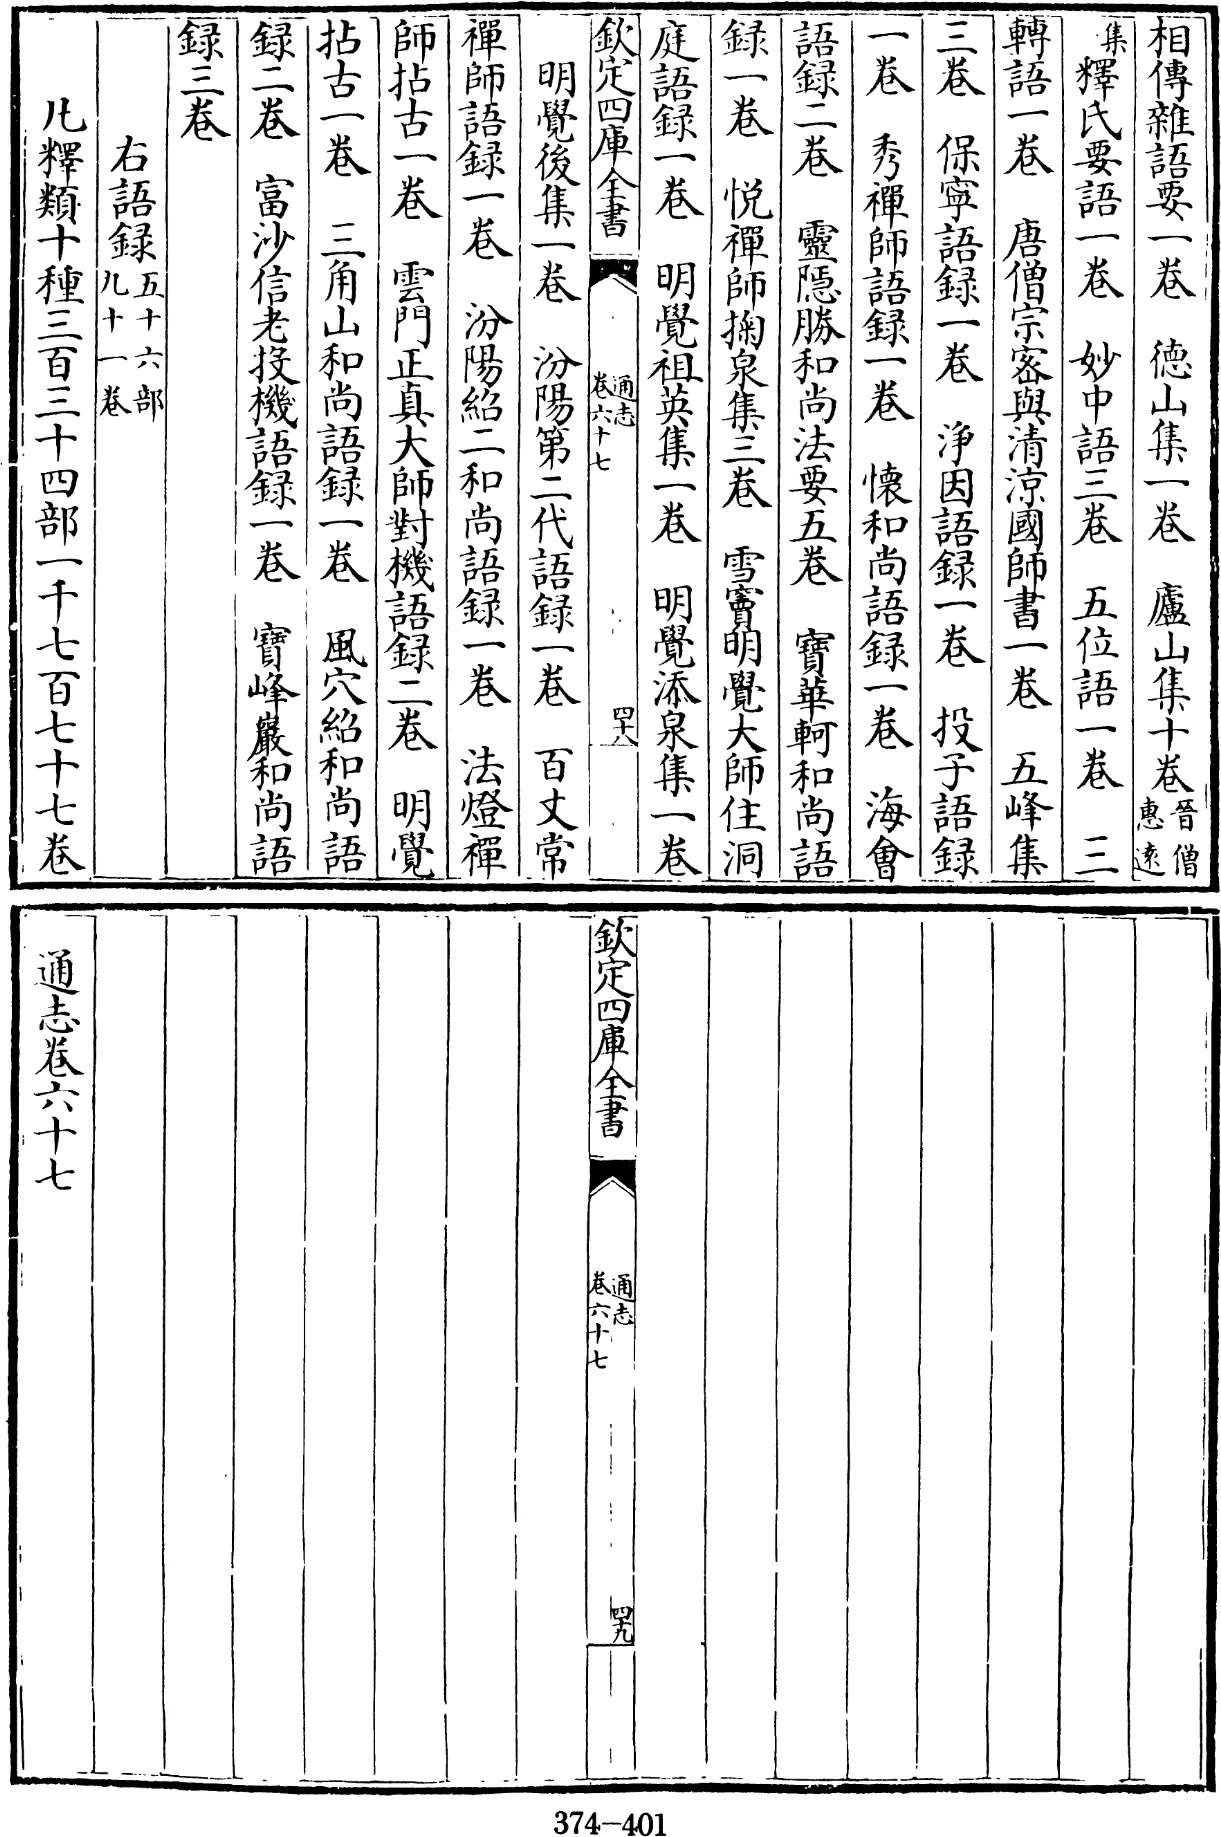 相傳雜語要一卷　德山集一卷　廬山集十卷晉僧惠遠
集釋氏要語一卷　妙中語三卷　五位語一卷　三
轉語一卷　唐僧宗密與清涼國師書一卷　五峰集
三卷　保寧語録一卷　淨因語録一卷　投子語録
一卷　秀禪師語録一卷　懐和尚語録一卷　海會
語録二卷　靈隠勝和尚法要五卷　寶華軻和尚語
録一卷　悦禪師掬泉集三卷　雪竇明覺大師住洞
庭語録一卷　明覺祖英集一卷　明覺添泉集一卷
欽定四庫全書
通志
卷六十七
四十八
明覺後集一卷　汾陽第二代語録一卷　百丈常
禪師語録一卷　汾陽紹二和尚語録一卷　法燈禪
師拈古一卷　雲門正真大師對機語録二卷　明覺
拈古一卷　三角山和尚語録一卷　風穴紹和尚語
録二卷　富沙信老投機語録一卷　寶峰巖和尚語
録三卷
右語録五十六部
九十一卷
凡釋類十種三百三十四部一千七百七十七卷
欽定四庫全書
通志
卷六十七
四十九
通志卷六十七
374-401